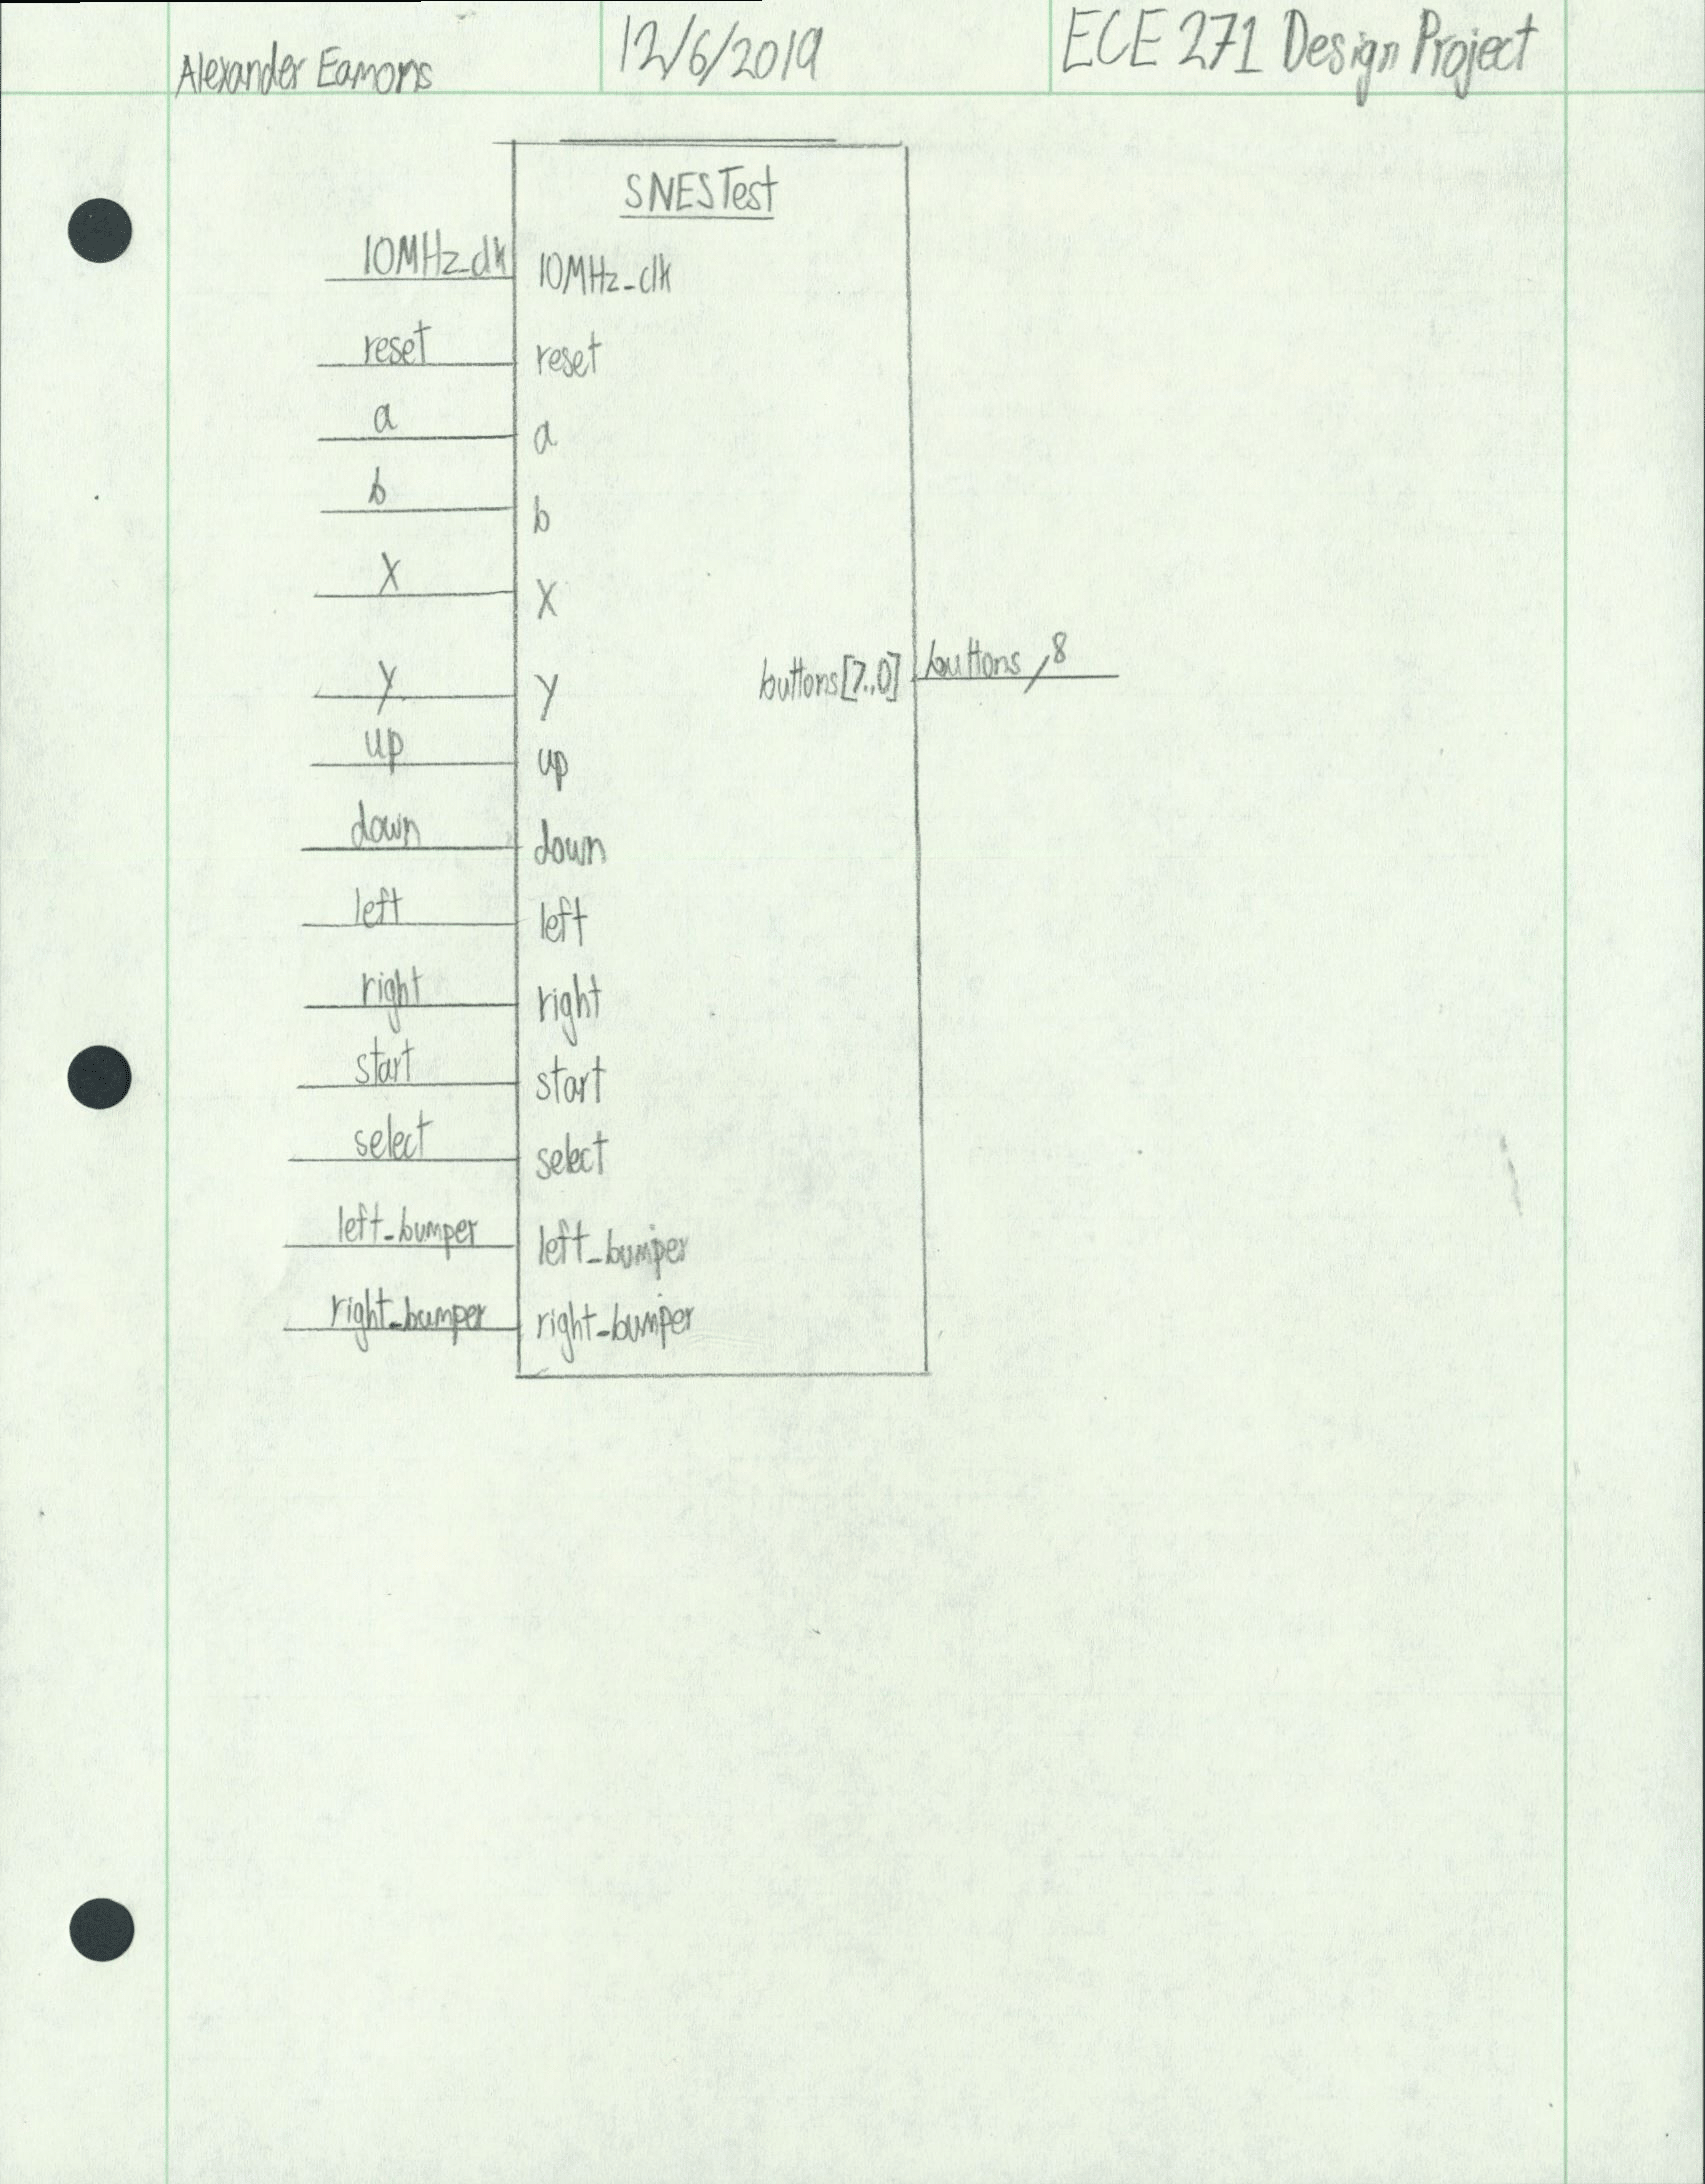 Alexander Eamons 12/6/2019 ECE 271 Design Project
SNESTest
10MHz_clk 10MHz_clk
reset reset
a a
b b
X X
y y
buttons[7..0] buttons 8
up up
down down
left left
right right
start start
select select
left_bumper left_bumper
right_bumper right_bumper